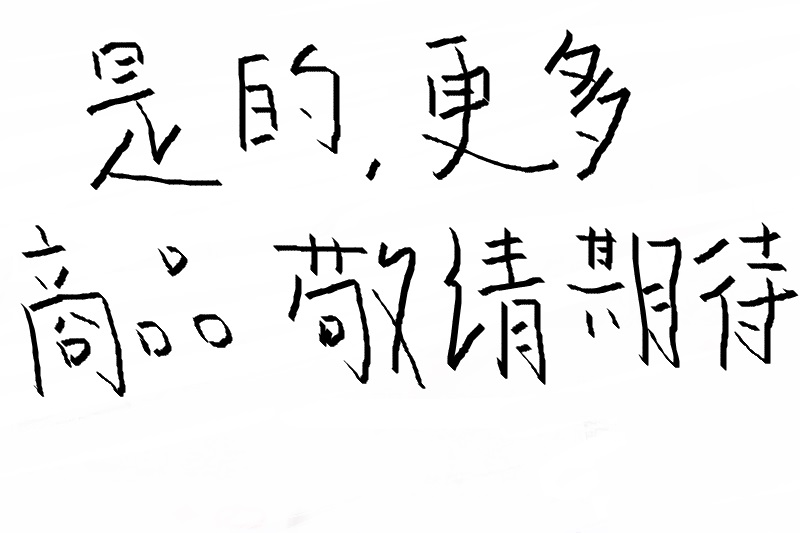 是的，更多
商品 敬请期待